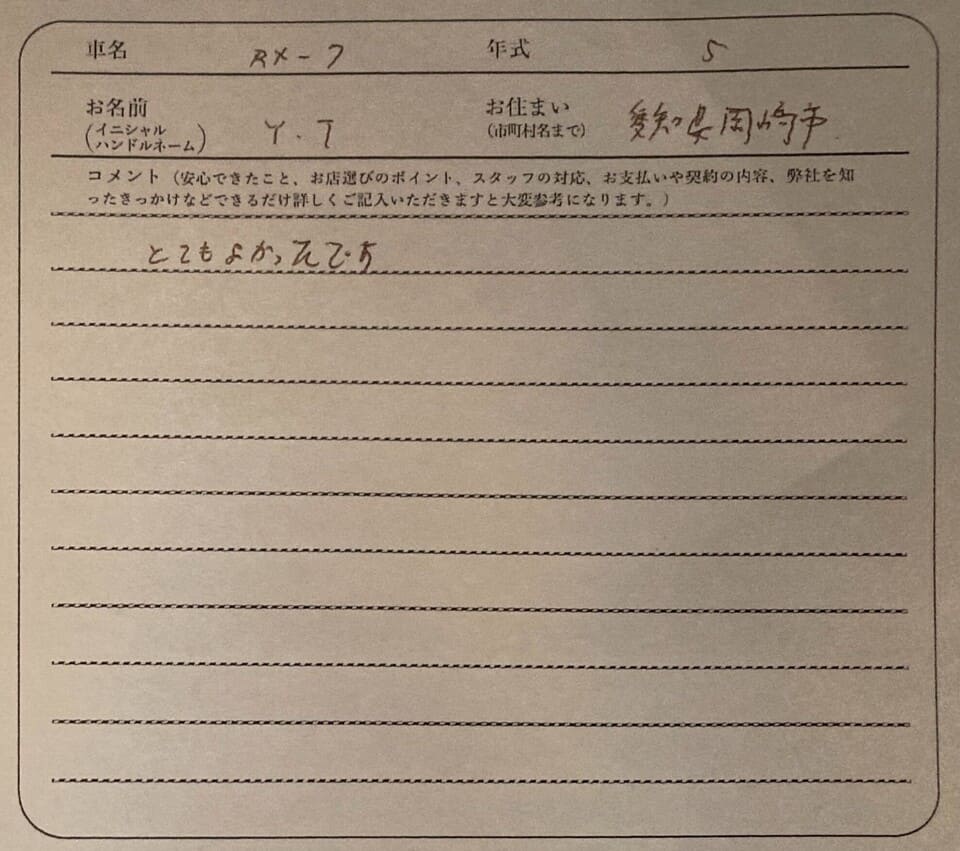 車名 RX-7 年式 5
お名前 (イニシャル ハンドルネーム) Y.T お住まい (市町村名まで) 愛知県岡崎市
コメント(安心できたこと、お店選びのポイント、スタッフの対応、お支払いや契約の内容、弊社を知
ったきっかけなどできるだけ詳しくご記入いただきますと大変参考になります。)
とてもよかったです